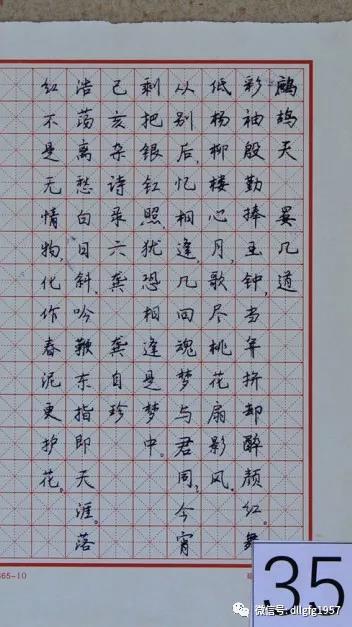 鹧鸪天 晏几道
彩袖殷勤捧玉钟,当年拼却醉颜红。舞
低杨柳楼心月,歌尽桃花扇影风。
从别后,忆相逢,几回魂梦与君同;今宵
剩把银釭照,犹恐相逢是梦中。
己亥杂诗录六龚 龚自珍
浩荡离愁白日斜,吟鞭东指即天涯。落
红不是无情物,化作春泥更护花。
65-10
35
微信号: dllgfg1957